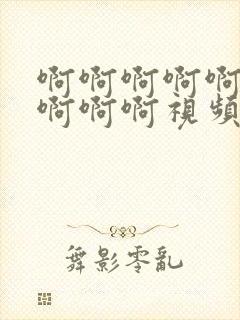 啊啊啊啊啊
啊啊啊視頻
舞影零亂